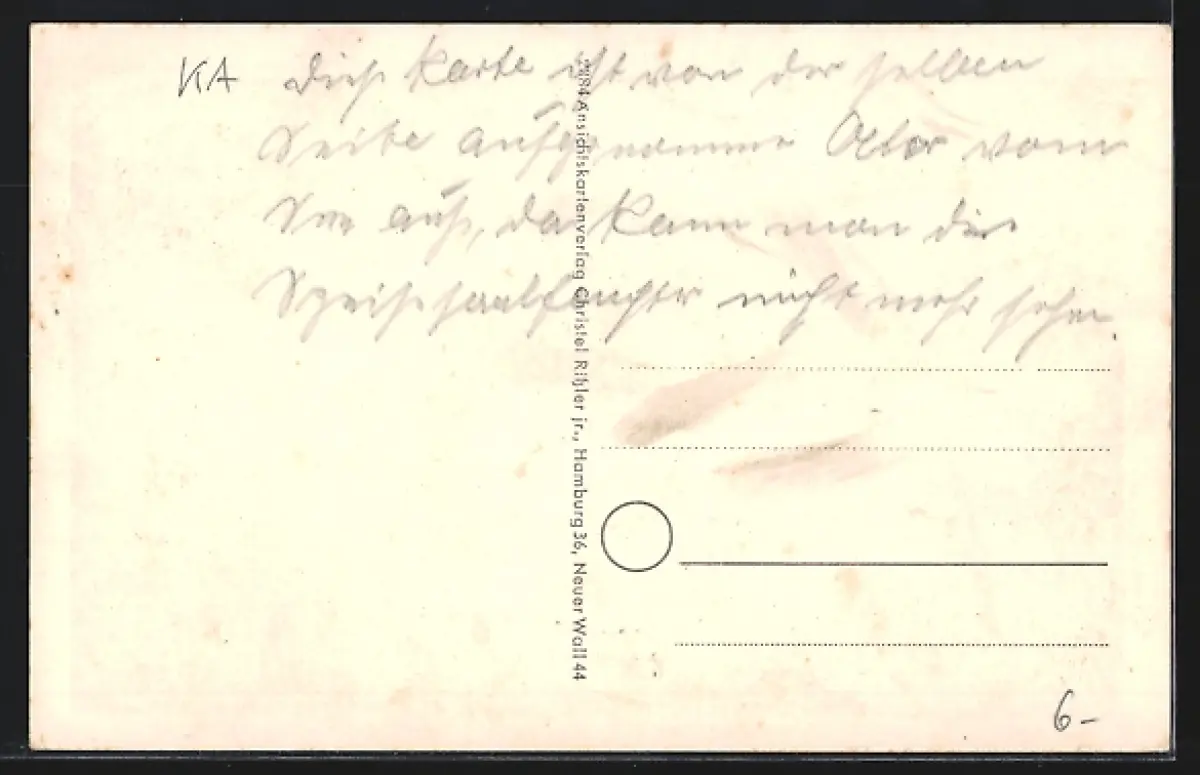 KA Diese Karte ist von der selben
Seite aufgenommen Aber vom
See aus, da kann man die
Speisesaalfenster nicht mehr sehen.
Ansichtskartenverlag Christel Rißler jr., Hamburg 36, Neuer Wall 44
6-